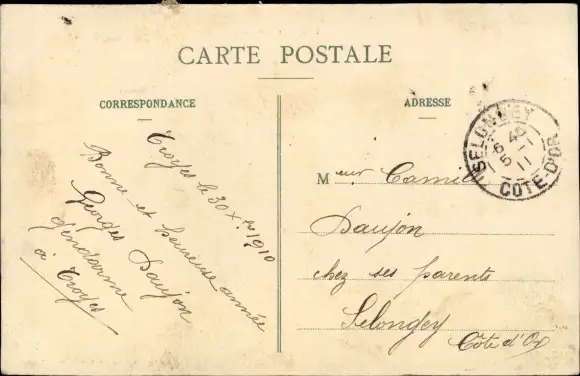 CARTE POSTALE
CORRESPONDANCE
Troyes le 30 Xbre 1910
Bonne et heureuse année
Georges Daujon
gendarme
à Troyes
ADRESSE
SELONGEY
6 45
5 - 1
11
COTE-D'OR
Meur Camille
Daujon
chez ses parents
Selongey
Côte d'Or